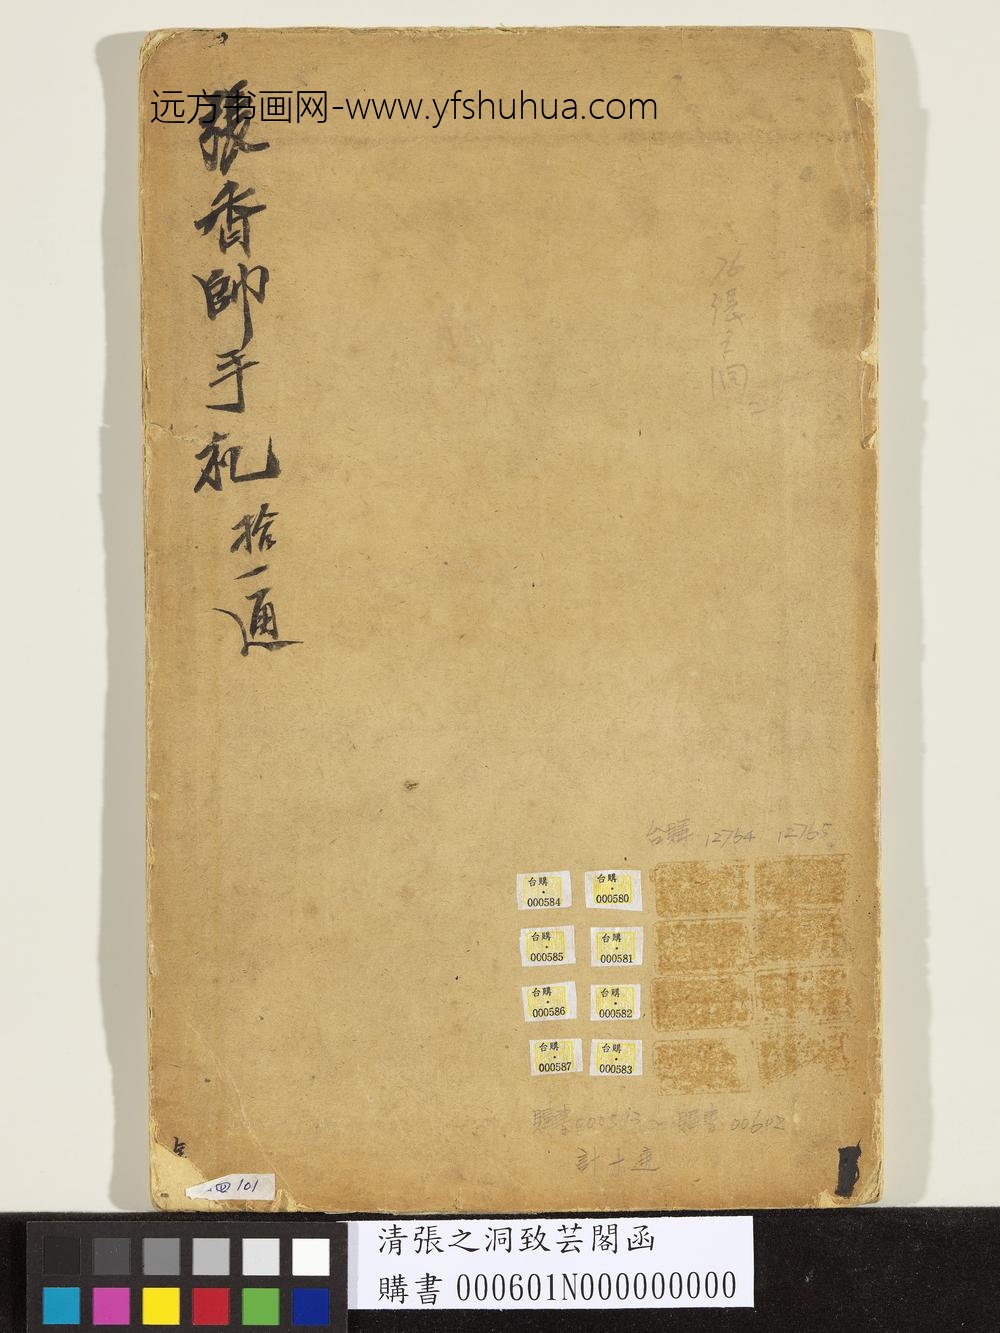 远方书画网-www.yfshuhua.com
張香帥手札拾通
76張之洞
台購 12764 12765
台購
000584
台購
000580
台購
000585
台購
000581
台購
000586
台購
000582
台購
000587
台購
000583
購書
購書 00602
計十通
四101
清張之洞致芸閣函
購書 000601N000000000